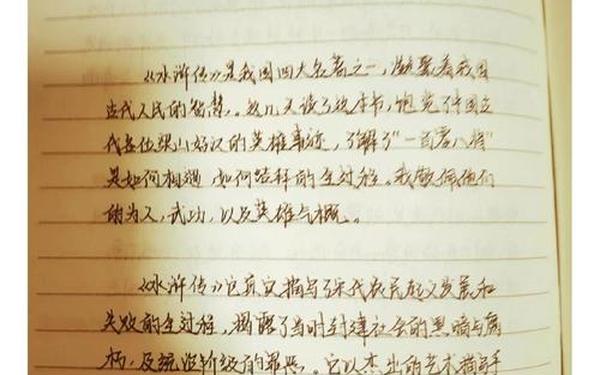 《水浒传》是我国四大名著之一，凝聚着我国
古代人民的智慧。这几天读了这本书，饱览了
各位梁山好汉的英雄事迹，了解了"一百零八将"
是如何相遇 如何结拜的全过程。我敬佩他们
的为人，武功，以及英雄气概。
《水浒传》它真实描写了宋代农民起义发展和
失败的全过程，揭露了当时封建社会的黑暗与腐
朽，及统治阶级的罪恶。它以杰出的艺术描写手